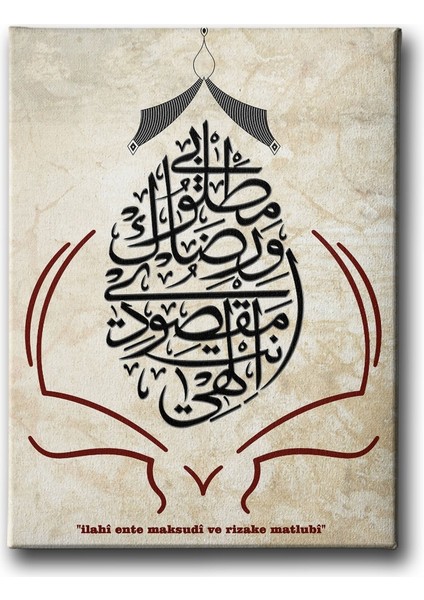 إلهي أنت مقصودي ورضاك مطلوبي
"ilahî ente maksudî ve rizake matlubî"